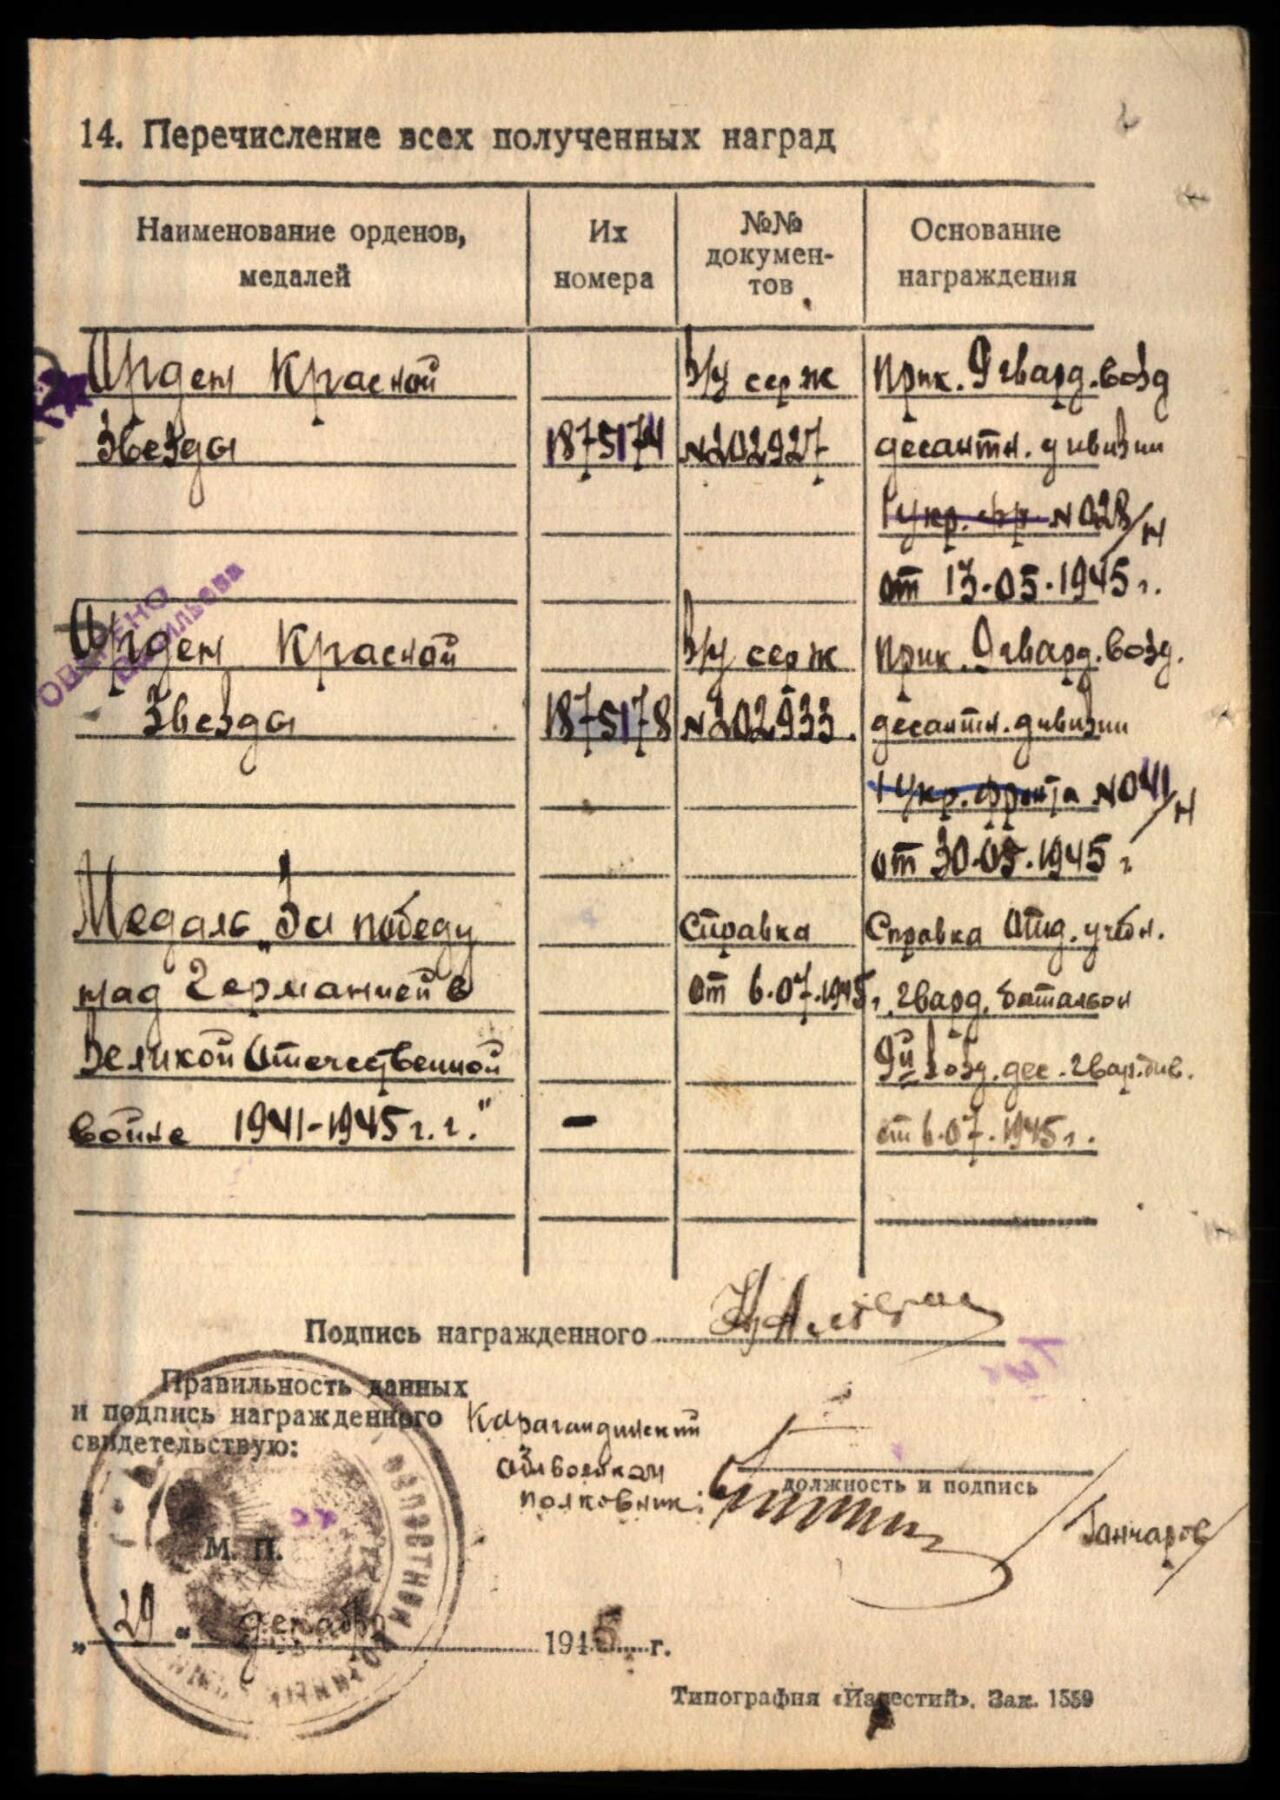 14. Перечисление всех полученных наград
Наименование орденов, медалей
Их номера
№№ докумен-тов
Основание награждения
Орден Красной
в/у серж
Прик. 9 гвард. возд
Звезды
1875174
№202927
десантн. дивизии
1 Укр. фр. №028/н
от 13.05.1945 г.
ОБМЕНЕНО
Орден Красной
в/у серж
Прик. 9 гвард. возд.
Звезды
1875178
№202933.
десантн. дивизии
1 Укр. фронта №041/н
от 30.05.1945 г.
Медаль „За победу
справка
Справка Отд. учебн.
над Германией в
от 6.07.1945 г.
гвард. баталион
Великой Отечественной
9й возд. дес. гвар. див.
войне 1941-1945 г.г."
-
от 6.07.1945 г.
Подпись награжденного
Правильность данных
и подпись награжденного
свидетельствую:
Карагандинский
облвоенком
полковник:
должность и подпись
/Ганчаров/
М. П.
„29" декабря 1945 г.
Типография «Известий». Зак. 1559